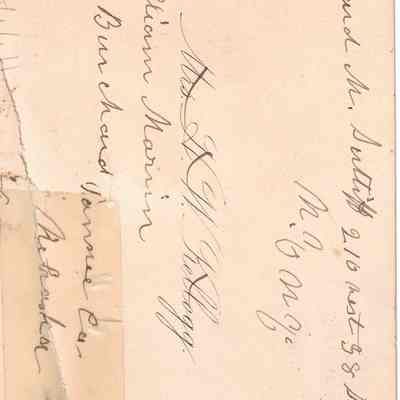 ard M. Sutliff 210 West 38 S
N.Y N.Y.
Mrs H. W. Kellogg.
liam Marvin
Burchard Pawnee Co.
Nebraska